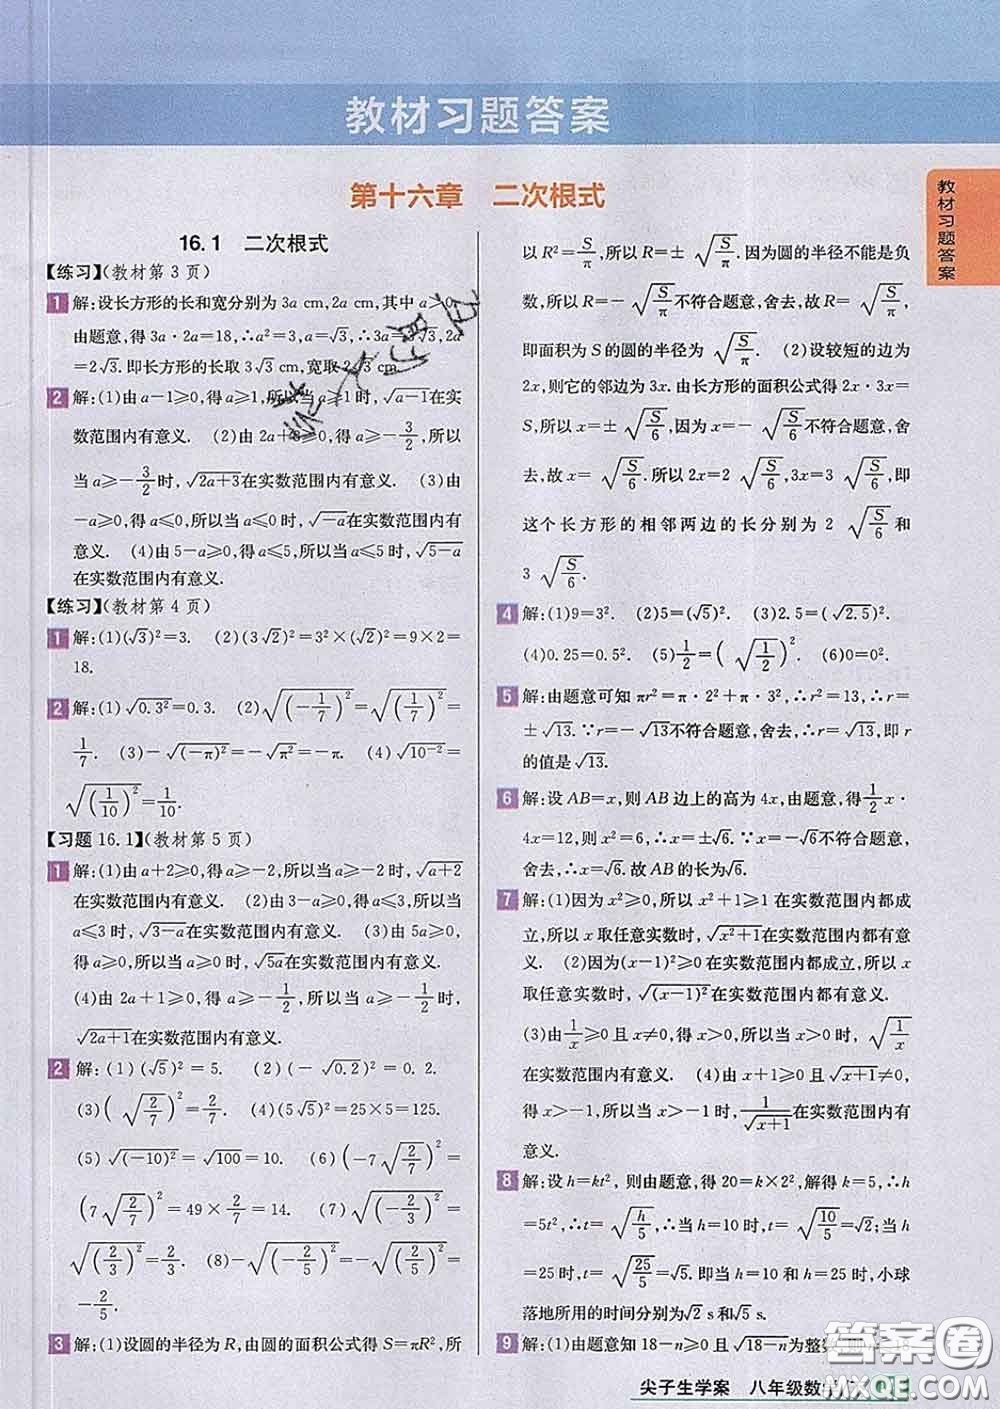 教材习题答案
第十六章 二次根式
教材习题答案
16.1 二次根式
【练习】(教材第3页)
1 解:设长方形的长和宽分别为3a cm,2a cm,其中a>0,
由题意,得3a·2a=18,∴a²=3,a=√3,∴3a=3√3,2a
=2√3.即长方形的长取3√3 cm,宽取2√3 cm.
2 解:(1)由a-1≥0,得a≥1,所以当a≥1时,√(a-1)在实
数范围内有意义. (2)由2a+3≥0,得a≥-3/2,所以
当a≥-3/2时,√(2a+3)在实数范围内有意义. (3)由
-a≥0,得a≤0,所以当a≤0时,√(-a)在实数范围内有
意义. (4)由5-a≥0,得a≤5,所以当a≤5时,√(5-a)
在实数范围内有意义.
【练习】(教材第4页)
1 解:(1)(√3)²=3. (2)(3√2)²=3²×(√2)²=9×2=
18.
2 解:(1)√(0.3²)=0.3. (2)√((-1/7)²)=√((1/7)²)=
1/7. (3)-√((-π)²)=-√(π²)=-π. (4)√(10⁻²)=
√((1/10)²)=1/10.
【习题16.1】(教材第5页)
1 解:(1)由a+2≥0,得a≥-2,所以当a≥-2时,√(a+2)
在实数范围内有意义. (2)由3-a≥0,得a≤3,所以当
a≤3时,√(3-a)在实数范围内有意义. (3)由5a≥0,
得a≥0,所以当a≥0时,√(5a)在实数范围内有意义.
(4)由2a+1≥0,得a≥-1/2,所以当a≥-1/2时,
√(2a+1)在实数范围内有意义.
2 解:(1)(√5)²=5. (2)(-√0.2)²=0.2.
(3)(√(2/7))²=2/7. (4)(5√5)²=25×5=125.
(5)√((-10)²)=√100=10. (6)(-7√(2/7))²=
(7√(2/7))²=49×2/7=14. (7)√((-2/3)²)=
√((2/3)²)=2/3. (8)-√((-2/5)²)=-√((2/5)²)=
-2/5.
3 解:(1)设圆的半径为R,由圆的面积公式得S=πR²,所
以R²=S/π,所以R=±√(S/π).因为圆的半径不能是负
数,所以R=-√(S/π)不符合题意,舍去,故R=√(S/π),
即面积为S的圆的半径为√(S/π). (2)设较短的边为
2x,则它的邻边为3x.由长方形的面积公式得2x·3x
=S,所以x=±√(S/6),因为x=-√(S/6)不符合题意,舍
去,故x=√(S/6).所以2x=2√(S/6),3x=3√(S/6),即
这个长方形的相邻两边的长分别为2√(S/6)和
3√(S/6).
4 解:(1)9=3². (2)5=(√5)². (3)2.5=(√2.5)².
(4)0.25=0.5². (5)1/2=(√(1/2))². (6)0=0².
5 解:由题意可知πr²=π·2²+π·3²,∴r²=13,∴r=
±√13.∵r=-√13不符合题意,舍去,∴r=√13,即r
的值是√13.
6 解:设AB=x,则AB边上的高为4x,由题意,得1/2x·
4x=12,则x²=6,∴x=±√6.∵x=-√6不符合题意,
舍去,∴x=√6.故AB的长为√6.
7 解:(1)因为x²≥0,所以x²+1≥1在实数范围内都成
立,所以x取任意实数时,√(x²+1)在实数范围内都有意
义. (2)因为(x-1)²≥0在实数范围内都成立,所以x
取任意实数时,√((x-1)²)在实数范围内都有意义.
(3)由1/x≥0且x≠0,得x>0,所以当x>0时,√(1/x)
在实数范围内有意义. (4)由x+1≥0且√(x+1)≠0,
得x>-1,所以当x>-1时,1/√(x+1)在实数范围内有
意义.
8 解:设h=kt²,则由题意,得20=k×2²,解得k=5,∴h
=5t²,∴t=√(h/5),∴当h=10时,t=√(10/5)=√2;当h
=25时,t=√(25/5)=√5.即当h=10和h=25时,小球
落地所用的时间分别为√2 s和√5 s.
9 解:(1)由题意知18-n≥0且√(18-n)为整
尖子生学案 八年级数学
答案圈
MXQE